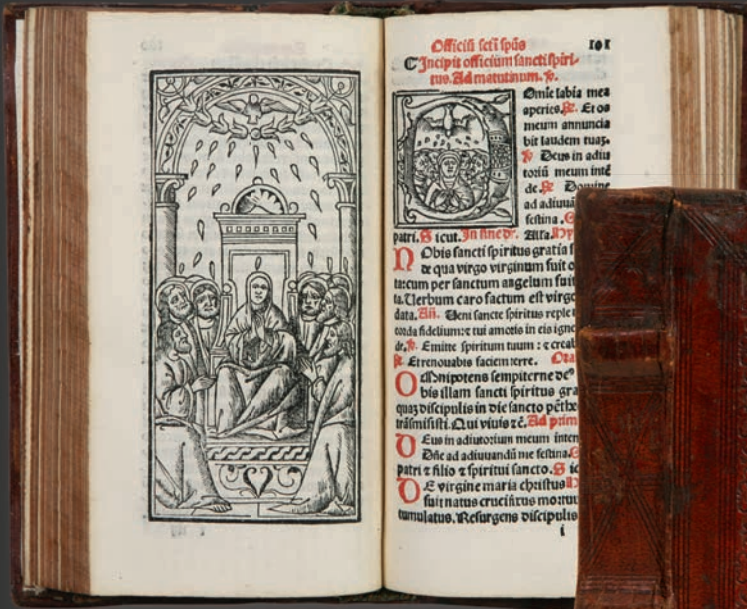 Officiū scti spūs
101
☾Incipit officium sancti spiri-
tus. Ad matutinum. ℣.
Omīe labia mea
aperies. ℟. Et os
meum annuncia
bit laudem tuaʒ.
℣ Deus in adiu
toriū meum intē
de. ℟ Domine
ad adiuuā
festina.
patri. S icut. In fine dr. Alła. Hy
NObis sancti spiritus gratia
de qua virgo virginum fuit
per sanctum angelum fuit
ta. Uerbum caro factum est virgo
data. Añ. Ueni sancte spiritus reple
corda fidelium: ⁊ tui amoris in eis igne
℣. Emitte spiritum tuum: ⁊ creab
℟. Et renouabis faciem terre. Ora
OMnipotens sempiterne deꝰ
bis illam sancti spiritus gra
quaʒ discipulis in die sancto pēthe
trāsmisisti. Qui viuis ⁊ē. Ad prim
DEus in adiutorium meum inten
Dñe ad adiuuandū me festina.
patri ⁊ filio ⁊ spiritui sancto. S ic
DE virgine maria christus
fuit natus crucifixus mortuu
tumulatus. Resurgens discipulis
i